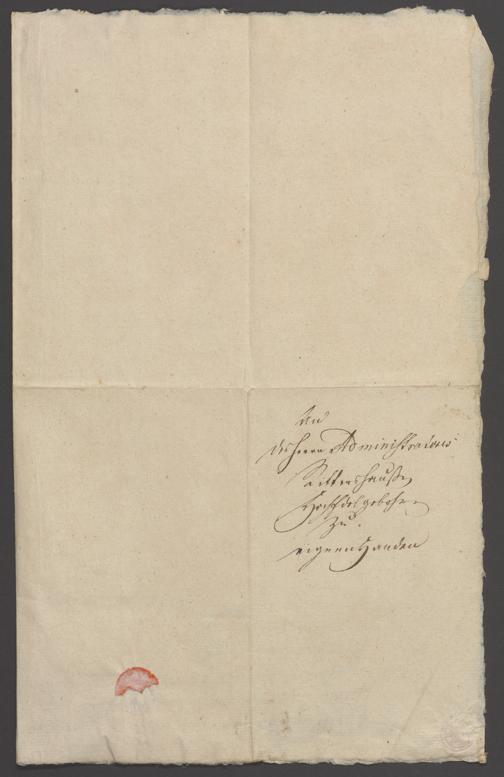 An
des Herrn Administrators
Rittershauße
Hochedelgebohrn
zu
eigenen Handen